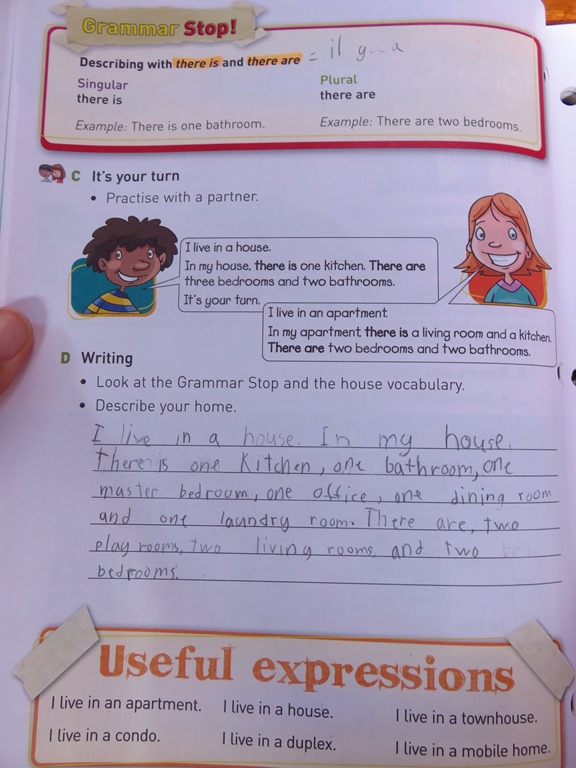 Grammar Stop!
Describing with there is and there are = il y a
Singular
there is
Example: There is one bathroom.
Plural
there are
Example: There are two bedrooms.
C It's your turn
• Practise with a partner.
I live in a house.
In my house, there is one kitchen. There are
three bedrooms and two bathrooms.
It's your turn.
I live in an apartment.
In my apartment there is a living room and a kitchen.
There are two bedrooms and two bathrooms.
D Writing
• Look at the Grammar Stop and the house vocabulary.
• Describe your home.
I live in a house. In my house,
there is one Kitchen, one bathroom, one
master bedroom, one office, one dining room
and one laundry room. There are, two
play rooms, two living rooms, and two
bedrooms.
Useful expressions
I live in an apartment. I live in a house. I live in a townhouse.
I live in a condo. I live in a duplex. I live in a mobile home.